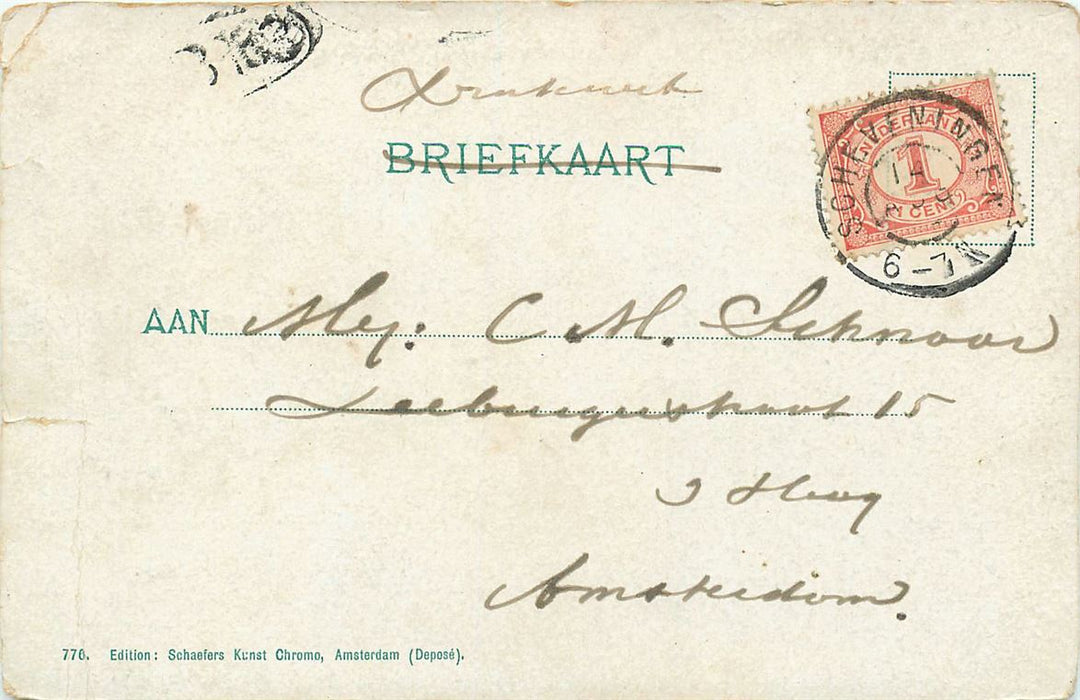 Drukwerk
BRIEFKAART
NEDERLAND
1
CENT
SCHEVENINGEN
6-7 N
AAN Mej. C M. Schnaar
15
3 Hoog
Amsterdam.
776. Edition: Schaefers Kunst Chromo, Amsterdam (Deposé).